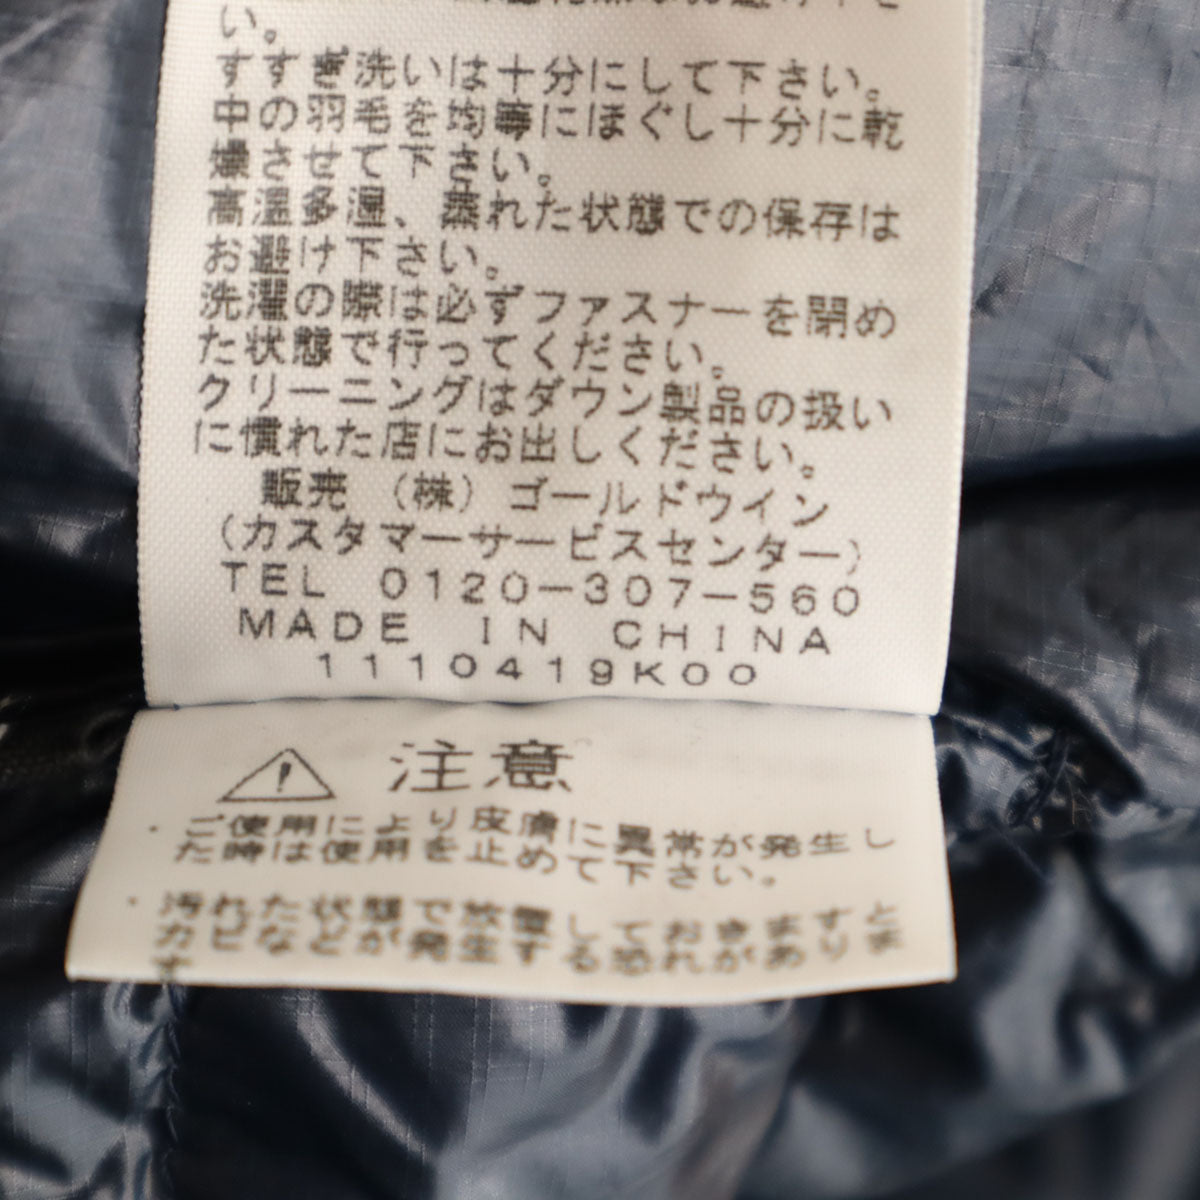 い。
すすぎ洗いは十分にして下さい。
中の羽毛を均等にほぐし十分に乾
燥させて下さい。
高温多湿、蒸れた状態での保存は
お避け下さい。
洗濯の際は必ずファスナーを閉め
た状態で行ってください。
クリーニングはダウン製品の扱い
に慣れた店にお出しください。
販売 （株）ゴールドウイン
(カスタマーサービスセンター)
TEL 0120-307-560
MADE IN CHINA
1110419K00
注意
・ご使用により皮膚に異常が発生し
た時は使用を止めて下さい。
・汚れた状態で放置しておきますと
カビなどが発生する恐れがありま
す